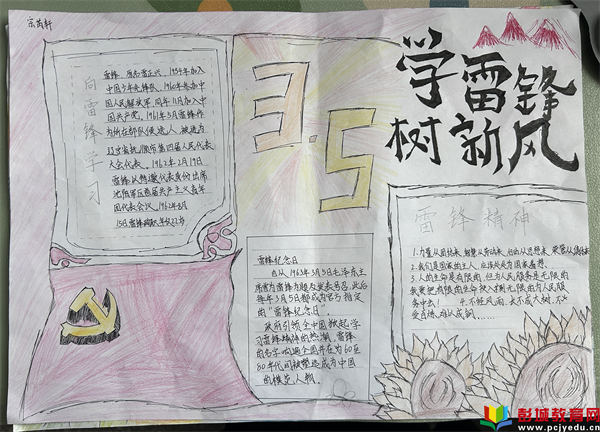 宗芮轩
向雷锋学习
雷锋,原名雷正兴,1954年加入
中国少年先锋队,1960年参加中
国人民解放军,同年11月加入中
国共产党。1961年5月雷锋作
为所在部队候选人,被选为
辽宁省抚顺市第四届人民代表
大会代表。1962年2月19日
雷锋以特邀代表身份出席
沈阳军区首届共产主义青年
团代表会议。1962年8月
15日雷锋殉职,年仅22岁
3.5
学雷锋
树新风
雷锋纪念日
1963年3月5日毛泽东主
席为雷锋
每年3月5日都成为官方指定
的"雷锋纪念日"。
全中国掀起学
习雷锋精神的热潮,雷锋
的名字响遍全国并在为60至
80年代间被塑造成为中国
的模范人物。
雷锋精神
1.力量从团结来,智慧从劳动来,行动从思想来,荣誉从集体来
2.我们是国家的主人,应该处处为国家着想。
3.人的生命是有限的,但为人民服务是无限的
我要把有限的生命投入到无限的为人民服
务中去! 4.不经风雨,长不成大树,不
受百炼,难以成钢……
彭城教育网
www.pcjyedu.cn